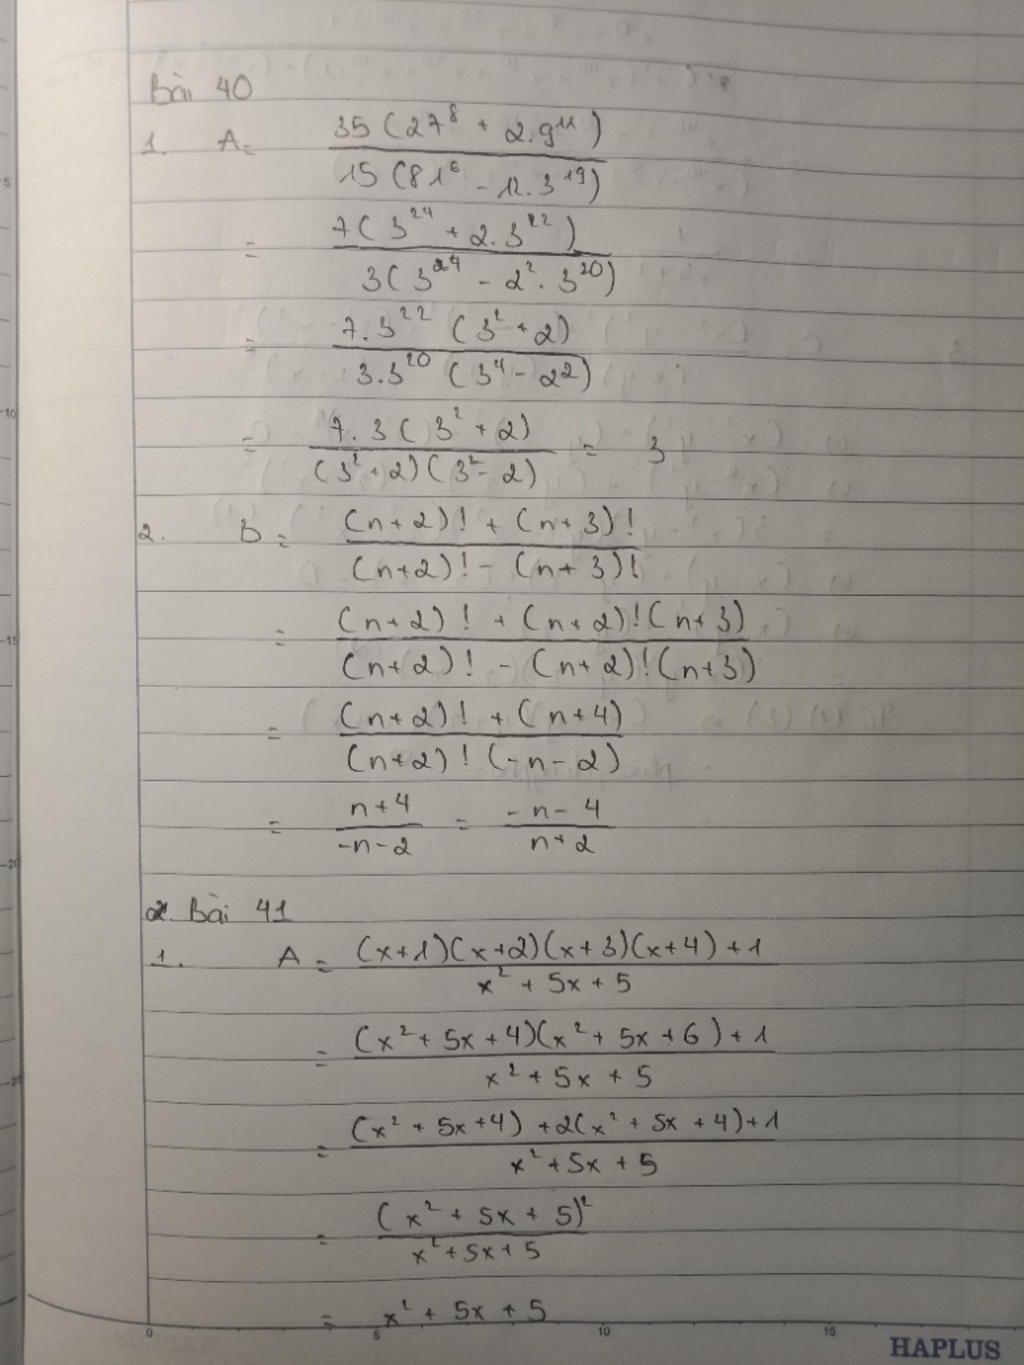 Bài 40
1. A = \frac{35(27^8 + 2.9^{11})}{15(81^6 - 12.3^{19})}
= \frac{7(3^{24} + 2.3^{22})}{3(3^{24} - 2^2.3^{20})}
= \frac{7.3^{22}(3^2 + 2)}{3.3^{20}(3^4 - 2^2)}
= \frac{7.3(3^2 + 2)}{(3^2 + 2)(3^2 - 2)} = 3
2. B = \frac{(n+2)! + (n+3)!}{(n+2)! - (n+3)!}
= \frac{(n+2)! + (n+2)!(n+3)}{(n+2)! - (n+2)!(n+3)}
= \frac{(n+2)! + (n+4)}{(n+2)!(-n-2)}
= \frac{n+4}{-n-2} = \frac{-n-4}{n+2}
Bài 41
1. A = \frac{(x+1)(x+2)(x+3)(x+4)+1}{x^2+5x+5}
= \frac{(x^2+5x+4)(x^2+5x+6)+1}{x^2+5x+5}
= \frac{(x^2+5x+4)+2(x^2+5x+4)+1}{x^2+5x+5}
= \frac{(x^2+5x+5)^2}{x^2+5x+5}
= x^2+5x+5
0 5 10 15
HAPLUS